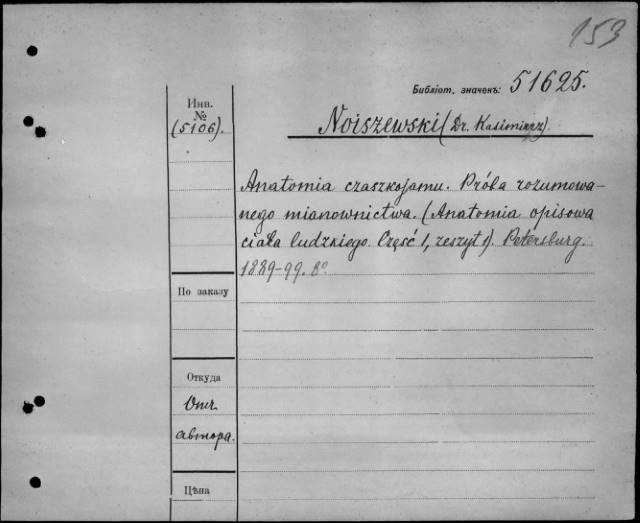 153
Библіот. значекъ: 51625.
Инв.
№
(5106).
Noiszewski (Dr. Kasimierz).
Anatomia czaszkojamu. Próba rozumowa-
nego mianownictwa. (Anatomia opisowa
ciała ludzkiego. Część 1, zeszyt 1). Petersburg.
1889-99. 8°
По заказу
Откуда
Отъ
автора.
Цѣна